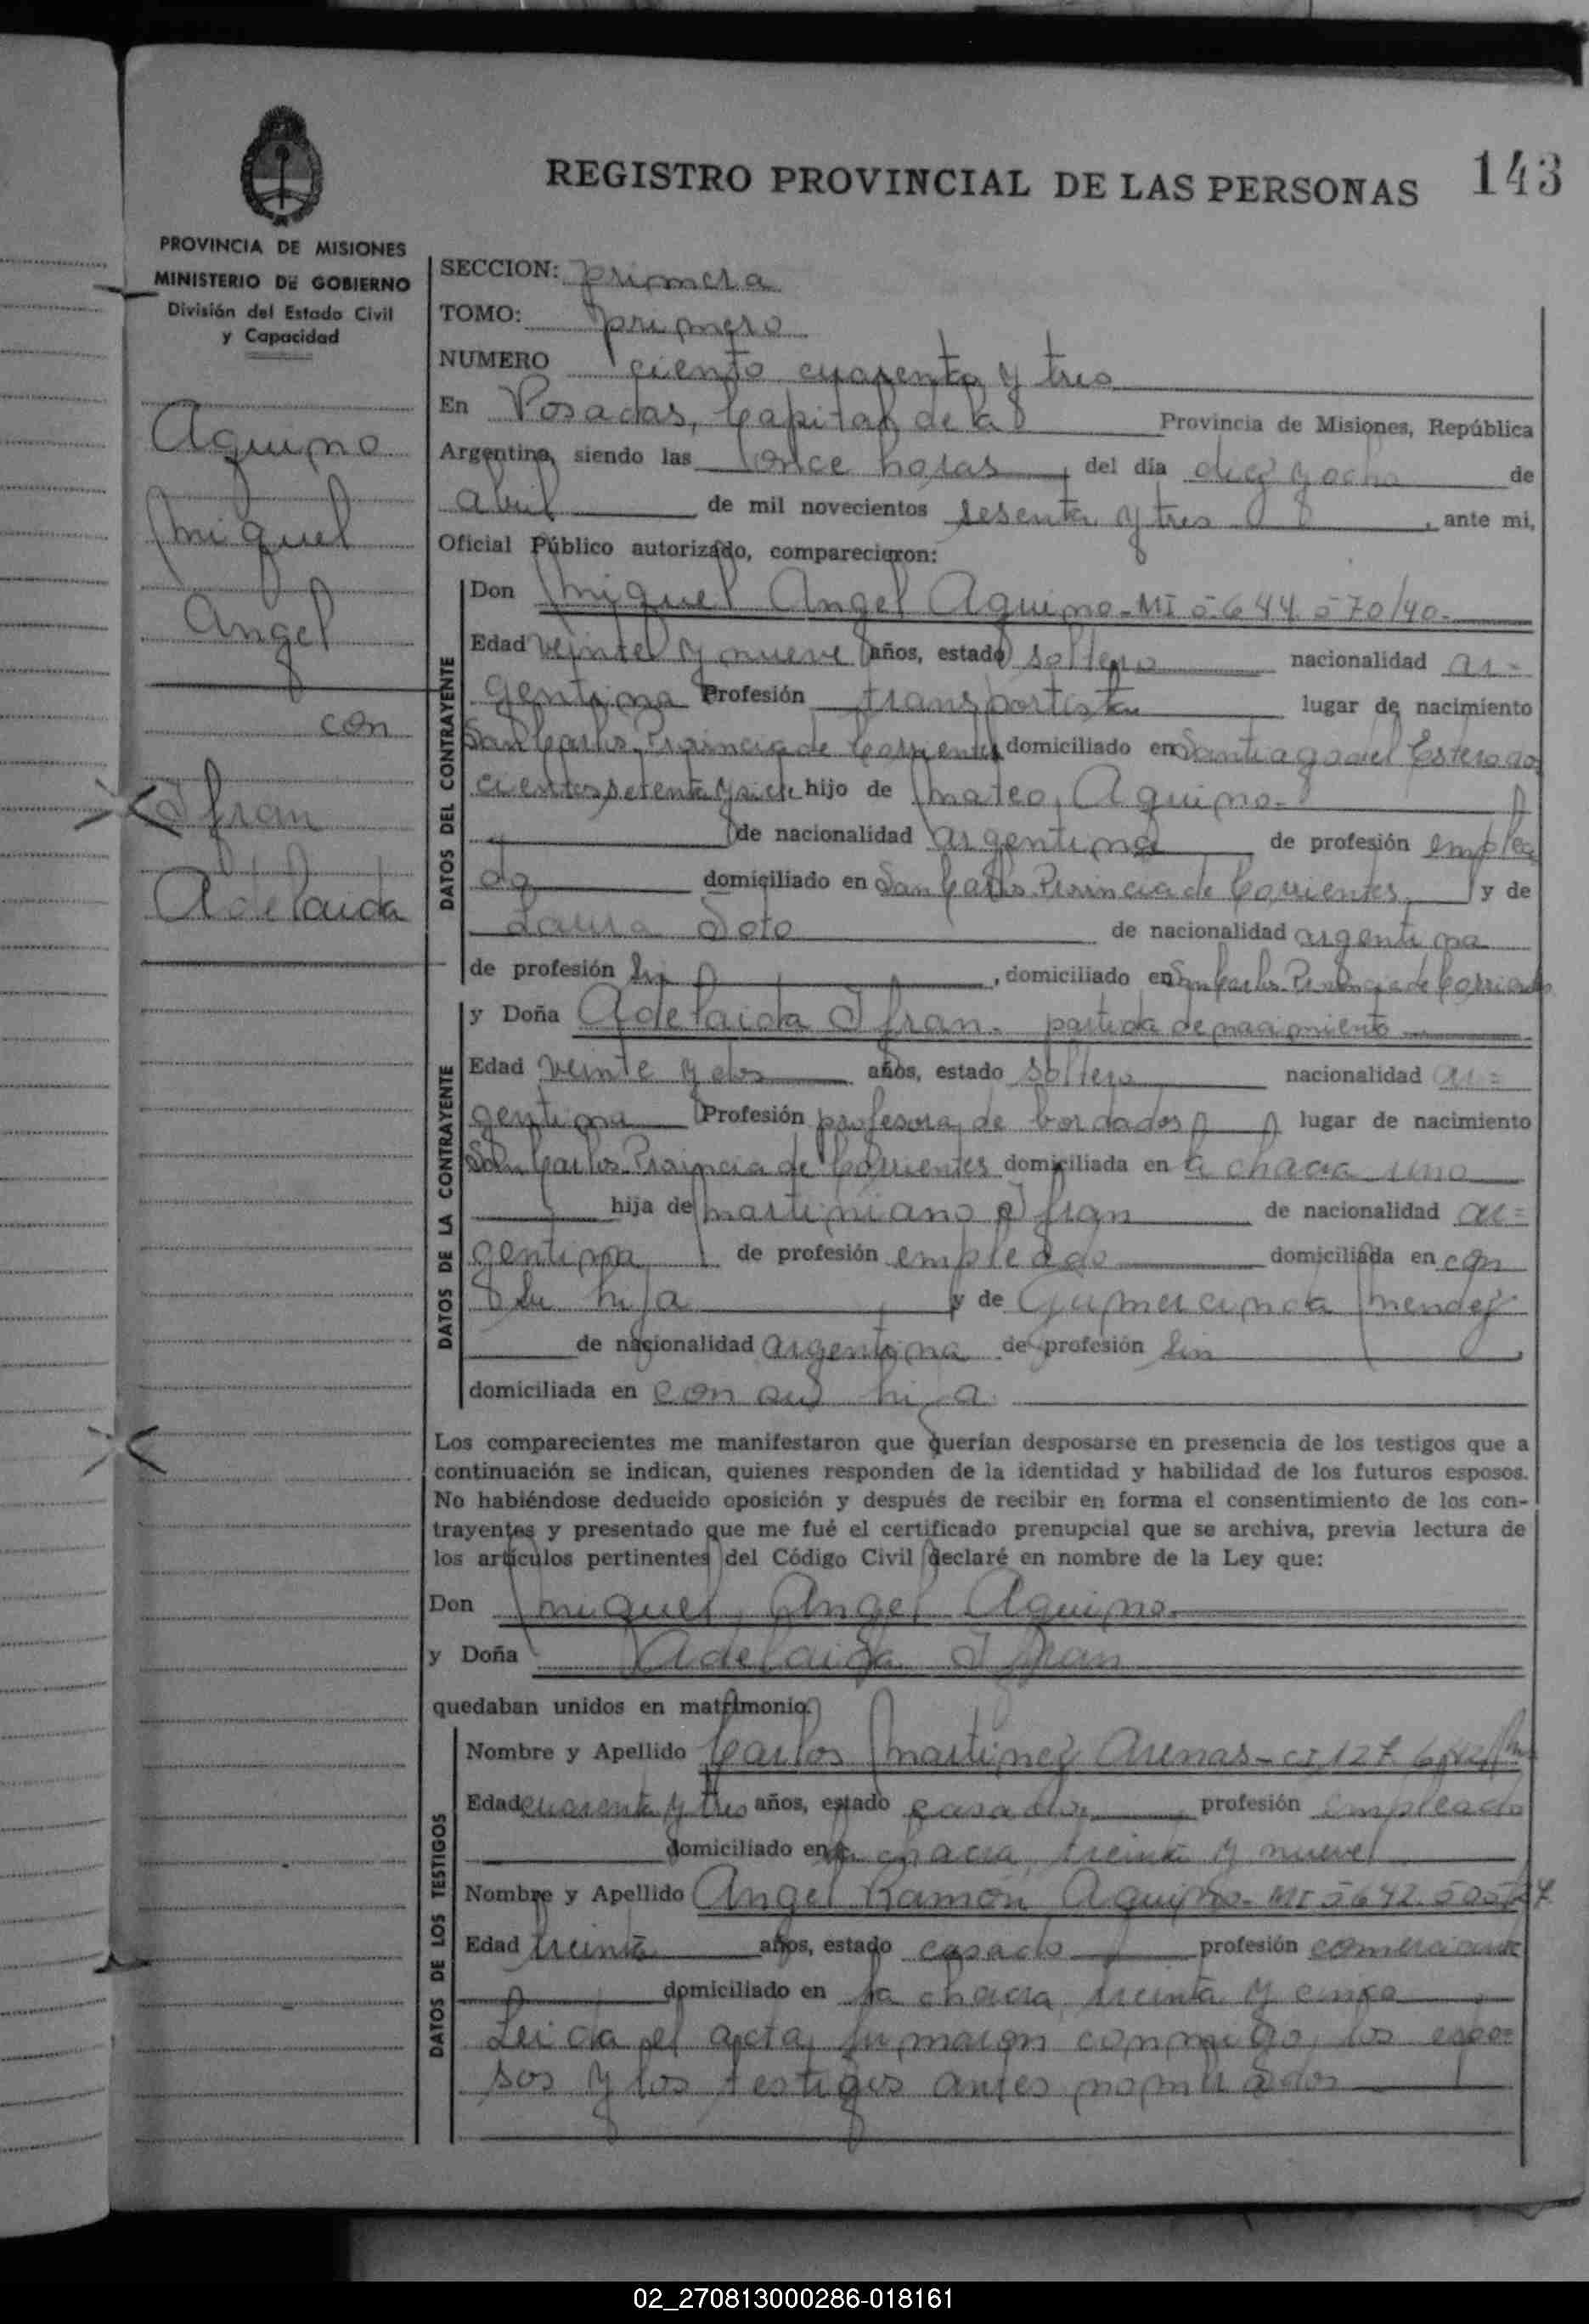 REGISTRO PROVINCIAL DE LAS PERSONAS 143
PROVINCIA DE MISIONES
MINISTERIO DE GOBIERNO
División del Estado Civil
y Capacidad
Aquino
Miguel
Angel
con
Ifran
Adelaida
SECCION: primera
TOMO: primero
NUMERO ciento cuarenta y tres
En Posadas, Capital de la Provincia de Misiones, República
Argentina, siendo las once horas, del día diez y ocho de
abril de mil novecientos sesenta y tres, ante mi,
Oficial Público autorizado, comparecieron:
DATOS DEL CONTRAYENTE
Don Miguel Angel Aquino - MI 5.644.570/40.
Edad veinte y nueve años, estado soltero nacionalidad ar=
gentina Profesión transportista lugar de nacimiento
San Carlos. Provincia de Corrientes domiciliado en Santiago del Estero dos
cientos setenta y siete hijo de Mateo Aquino.-
de nacionalidad argentina de profesión emplea
do domiciliado en San Carlos. Provincia de Corrientes y de
Laura Soto de nacionalidad argentina
de profesión sin, domiciliado en San Carlos. Provincia de Corrientes
DATOS DE LA CONTRAYENTE
y Doña Adelaida Ifran. partida de nacimiento
Edad veinte y dos años, estado soltera nacionalidad ar=
gentina Profesión profesora de bordados lugar de nacimiento
San Carlos. Provincia de Corrientes domiciliada en la chacra uno
hija de Martiniano Ifran de nacionalidad ar=
gentina de profesión empleado domiciliada en con
su hija y de Gumercinda Mendez
de nacionalidad argentina de profesión sin
domiciliada en con su hija
Los comparecientes me manifestaron que querían desposarse en presencia de los testigos que a
continuación se indican, quienes responden de la identidad y habilidad de los futuros esposos.
No habiéndose deducido oposición y después de recibir en forma el consentimiento de los con-
trayentes y presentado que me fué el certificado prenupcial que se archiva, previa lectura de
los artículos pertinentes del Código Civil declaré en nombre de la Ley que:
Don Miguel Angel Aquino.
y Doña Adelaida Ifran
quedaban unidos en matrimonio.
DATOS DE LOS TESTIGOS
Nombre y Apellido Carlos Martinez Arenas - CI 127
Edad cuarenta y tres años, estado casado profesión empleado
domiciliado en la chacra treinta y nueve
Nombre y Apellido Angel Ramón Aquino - MI 5642.
Edad treinta años, estado casado profesión comerciante
domiciliado en la chacra treinta y cinco
Leida el acta firmaron conmigo, los espo=
sos y los testigos antes nombrados
02_270813000286-018161